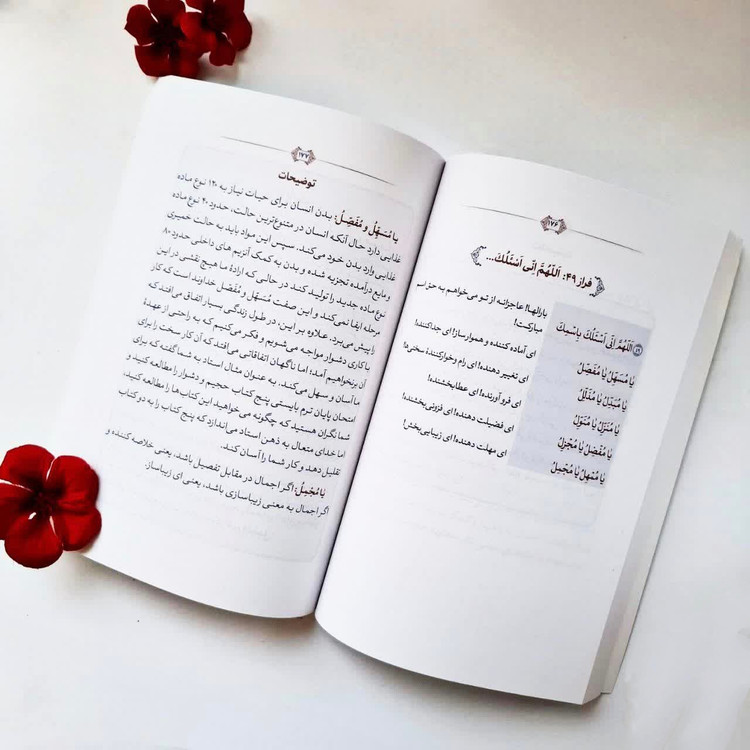 ۱۷۶
فراز ۴۹: اَللّهُمَّ اِنّی اَسْئَلُکَ...
۴۹ اَللّهُمَّ اِنّی اَسْئَلُکَ بِاسْمِکَ
یا مُسَهِّلُ یا مُفَصِّلُ
یا مُبَدِّلُ یا مُذَلِّلُ
یا مُنَزِّلُ یا مُنَوِّلُ
یا مُفْضِلُ یا مُجْزِلُ
یا مُمْهِلُ یا مُجْمِلُ
بارالها! عاجزانه از تو می‌خواهم به حق اسم
مبارکت!
ای آماده کننده و هموارساز! ای جداکننده!
ای تغییر دهنده! ای رام وخوارکنندۀ سختی‌ها!
ای فرو آورنده! ای عطابخشنده!
ای فضیلت دهنده! ای فزونی‌بخشنده!
ای مهلت دهنده! ای زیبایی‌بخش!
۱۷۷
توضیحات
یا مُسَهِّلُ و مُفَصِّلُ: بدن انسان برای حیات نیاز به ۱۲۰ نوع ماده
غذایی دارد حال آنکه انسان در متنوع‌ترین حالت، حدود ۴۰ نوع ماده
غذایی وارد بدن خود می‌کند. سپس این مواد باید به حالت خمیری
و مایع درآمده تجزیه شده و بدن به کمک آنزیم های داخلی حدود ۸۰
نوع ماده جدید را تولید کند در حالی که ارادۀ ما هیچ نقشی در این
مرحله ایفا نمی‌کند و این صفت مُسَهِّل و مُفَصِّل خداوند است که کار
را پیش می‌برد. علاوه بر این، در طول زندگی بسیار اتفاق می‌افتد که
با کاری دشوار مواجه می‌شویم و فکر می‌کنیم که به راحتی از عهدۀ
آن برنخواهیم آمد؛ اما ناگهان اتفاقاتی می‌افتد که آن کار سخت را برای
ما آسان و سهل می‌کند. به عنوان مثال استاد به شما گفته که برای
امتحان پایان ترم بایستی پنج کتاب حجیم و دشوار را مطالعه کنید و
شما نگران هستید که چگونه می‌خواهید این کتاب‌ها را مطالعه کنید.
اما خدای متعال به ذهن استاد می‌اندازد که پنج کتاب را به دو کتاب
تقلیل دهد و کار شما را آسان کند.
یا مُجْمِلُ: اگر اجمال در مقابل تفصیل باشد، یعنی خلاصه کننده و
اگر اجمال به معنی زیباسازی باشد، یعنی ای زیباساز.